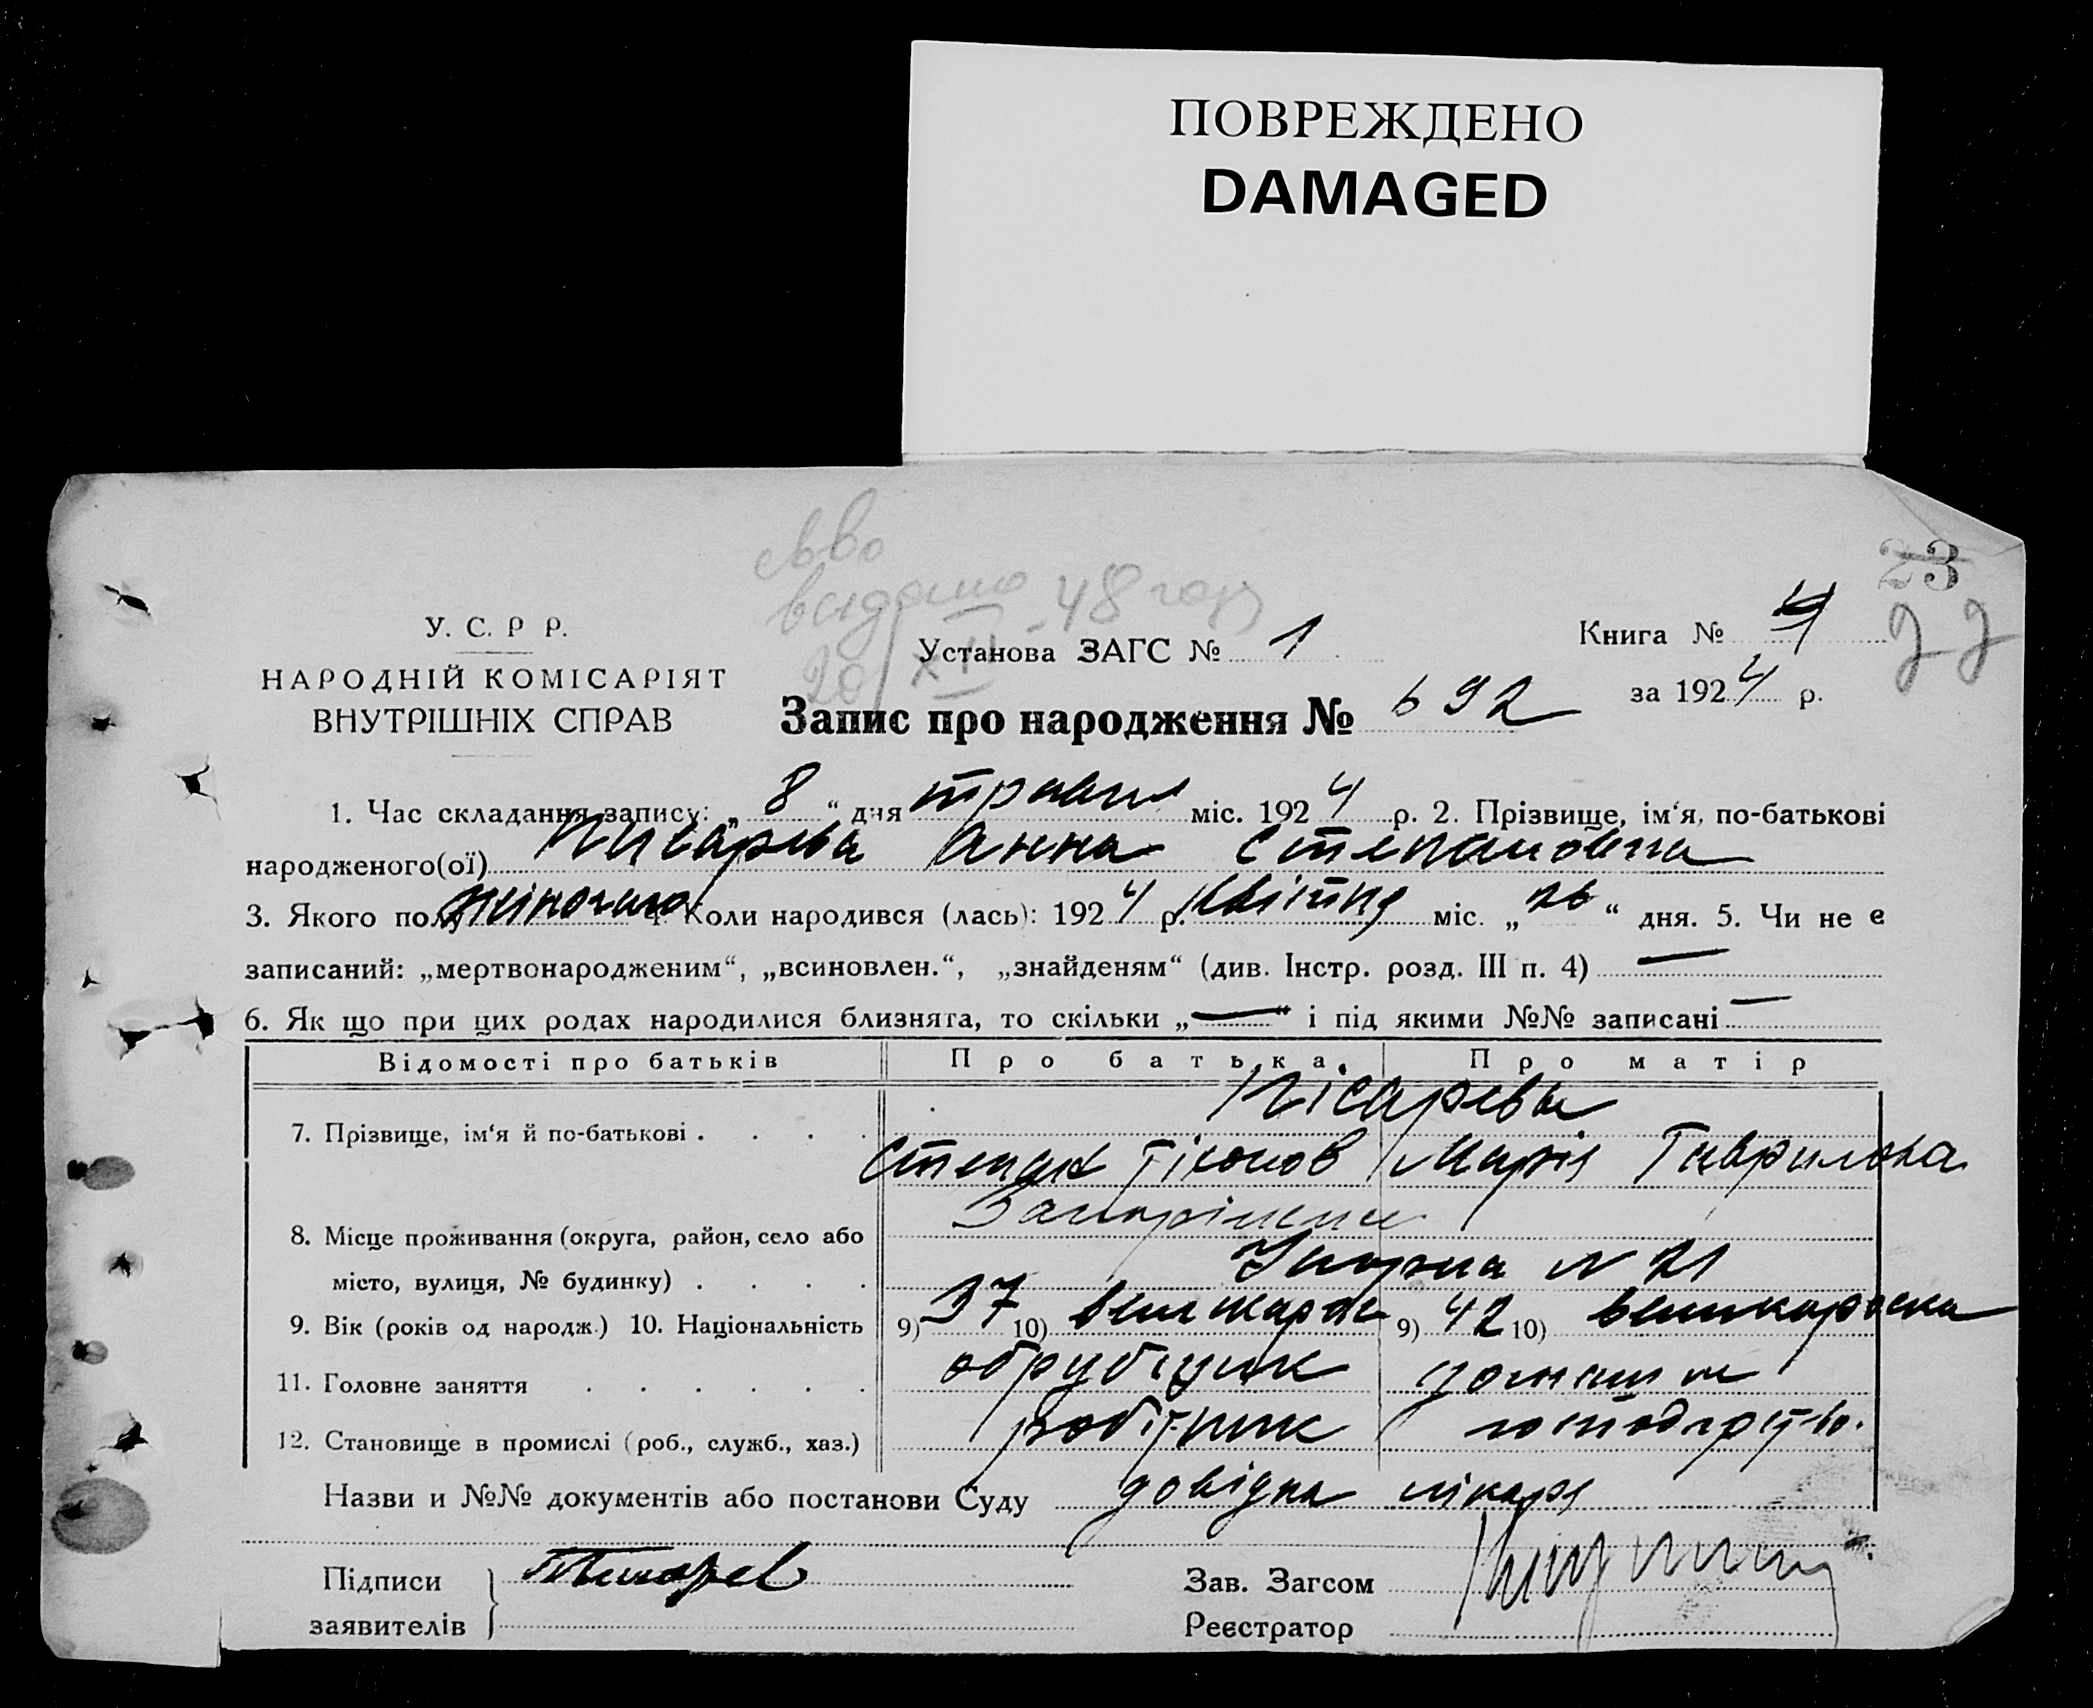 ПОВРЕЖДЕНО
DAMAGED
23
св-во
видано - 48 году
20/XII
У. С. Р Р.
НАРОДНІЙ КОМІСАРІЯТ
ВНУТРІШНІХ СПРАВ
Установа ЗАГС № 1
Книга №
за 1924 р.
Запис про народження № 692
1. Час складання запису: „ 8 “ дня травня міс. 1924 р. 2. Прізвище, ім‘я, по-батькові
народженого(ої) Писарева Анна Степановна
3. Якого полу жіночого 4. Коли народився (лась): 1924 р. квітня міс. „ 26 “ дня. 5. Чи не є
записаний: „мертвонародженим“, „всиновлен.“, „знайденям“ (див. Інстр. розд. III п. 4) —
6. Як що при цих родах народилися близнята, то скільки „—“ і під якими №№ записані —
Відомості про батьків Про батька Про матір
7. Прізвище, ім‘я й по-батькові . . . . Пісареви
Степан Тіхонов Марія Гавриловна
8. Місце проживання (округа, район, село або Запоріжжя
місто, вулиця, № будинку) . . . . № 21
9. Вік (років од народж.) 10. Національність 9) 37 10) великорос 9) 42 10) великороска
11. Головне заняття . . . . . . обрубщик домашнє
12. Становище в промислі (роб., служб., хаз.) робітник господарство.
Назви и №№ документів або постанови Суду довідка лікаря
Підписи Писарев
заявителів
Зав. Загсом
Реєстратор